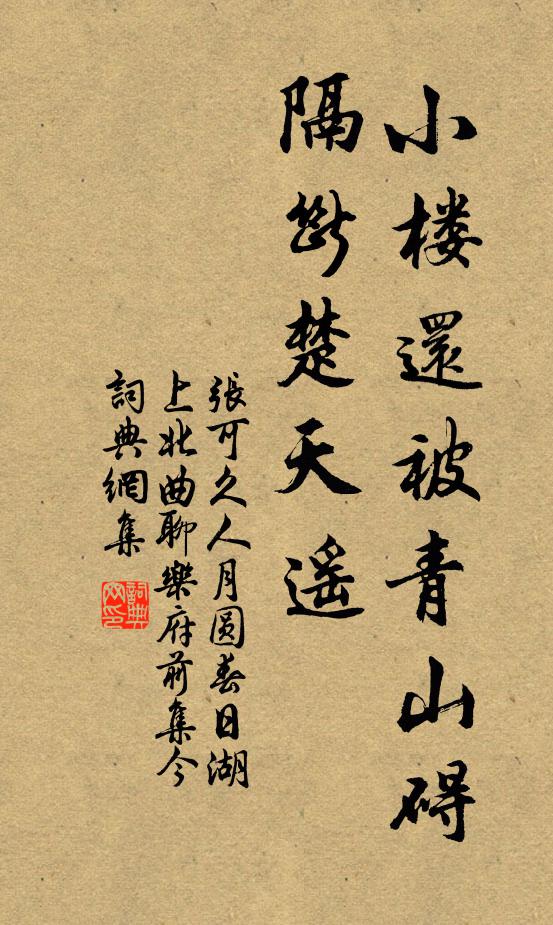 小楼還被青山碍
隔断楚天遥
張可久人月圆春日湖
上北曲聊樂府前集今
詞典網集
詞典
网印